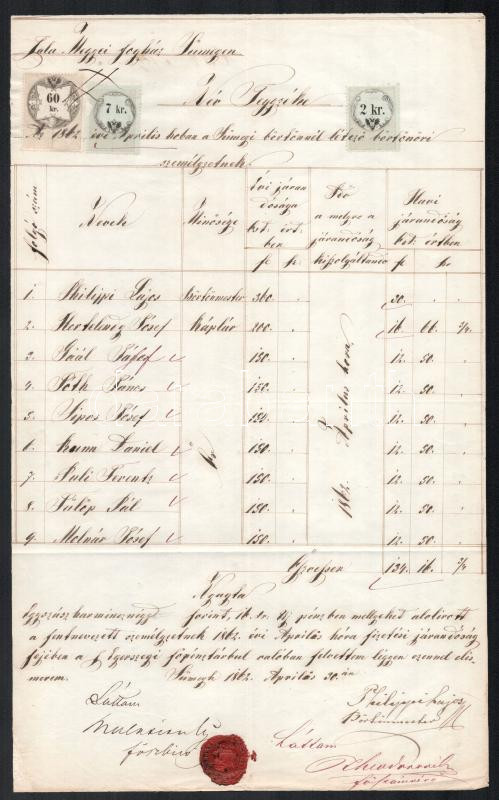 Zala Megyei fogház Sümegen
Név Jegyzéke
60 kr.
7 kr.
2 kr.
Az 1862 évi Április hoban a Sümegi börtönnél létező börtönőri
személyzetnek.
folyó szám
Nevek
Minősége
Évi járan
dósága
ost. ért
ben
Idő
a melyre a
járandóság
kiszolgáltando
Havi
járandóság
ost. értben
f. kr. f. kr.
1. Philippi Lajos börtönmester 360 " 30. "
2. József Káplár 200 " 16. 66. 2/4
3. Gaál József 150. " 12. 50.
4. Tóth János 150. " 12. 50.
5. Sipos József 150. " 12. 50.
6. Kuma Daniel őr 150. " 12. 50.
7. Puli Ferentz 150. " 12. 50.
8. Fülöp Pál 150. " 12. 50.
9. Molnár József 150. " 12. 50.
1862. Április hora.
Öszvesen 134. 16. 2/4
Nyugta
Egyszász harmincznégy forint, 16. kr. Uj pénzben mellyeket alolirott
a fentnevezett személyzetnek 1862. évi Április hóra fizetési járandóság
fejében a Z Egerszegi főpénztárbul valóban felvettem légyen ezennel elis
merem. Sümegh 1862. Április 30.án
Philippi Lajos
Börtönmester
Láttam
főszbiró
Láttam
főszámvevő